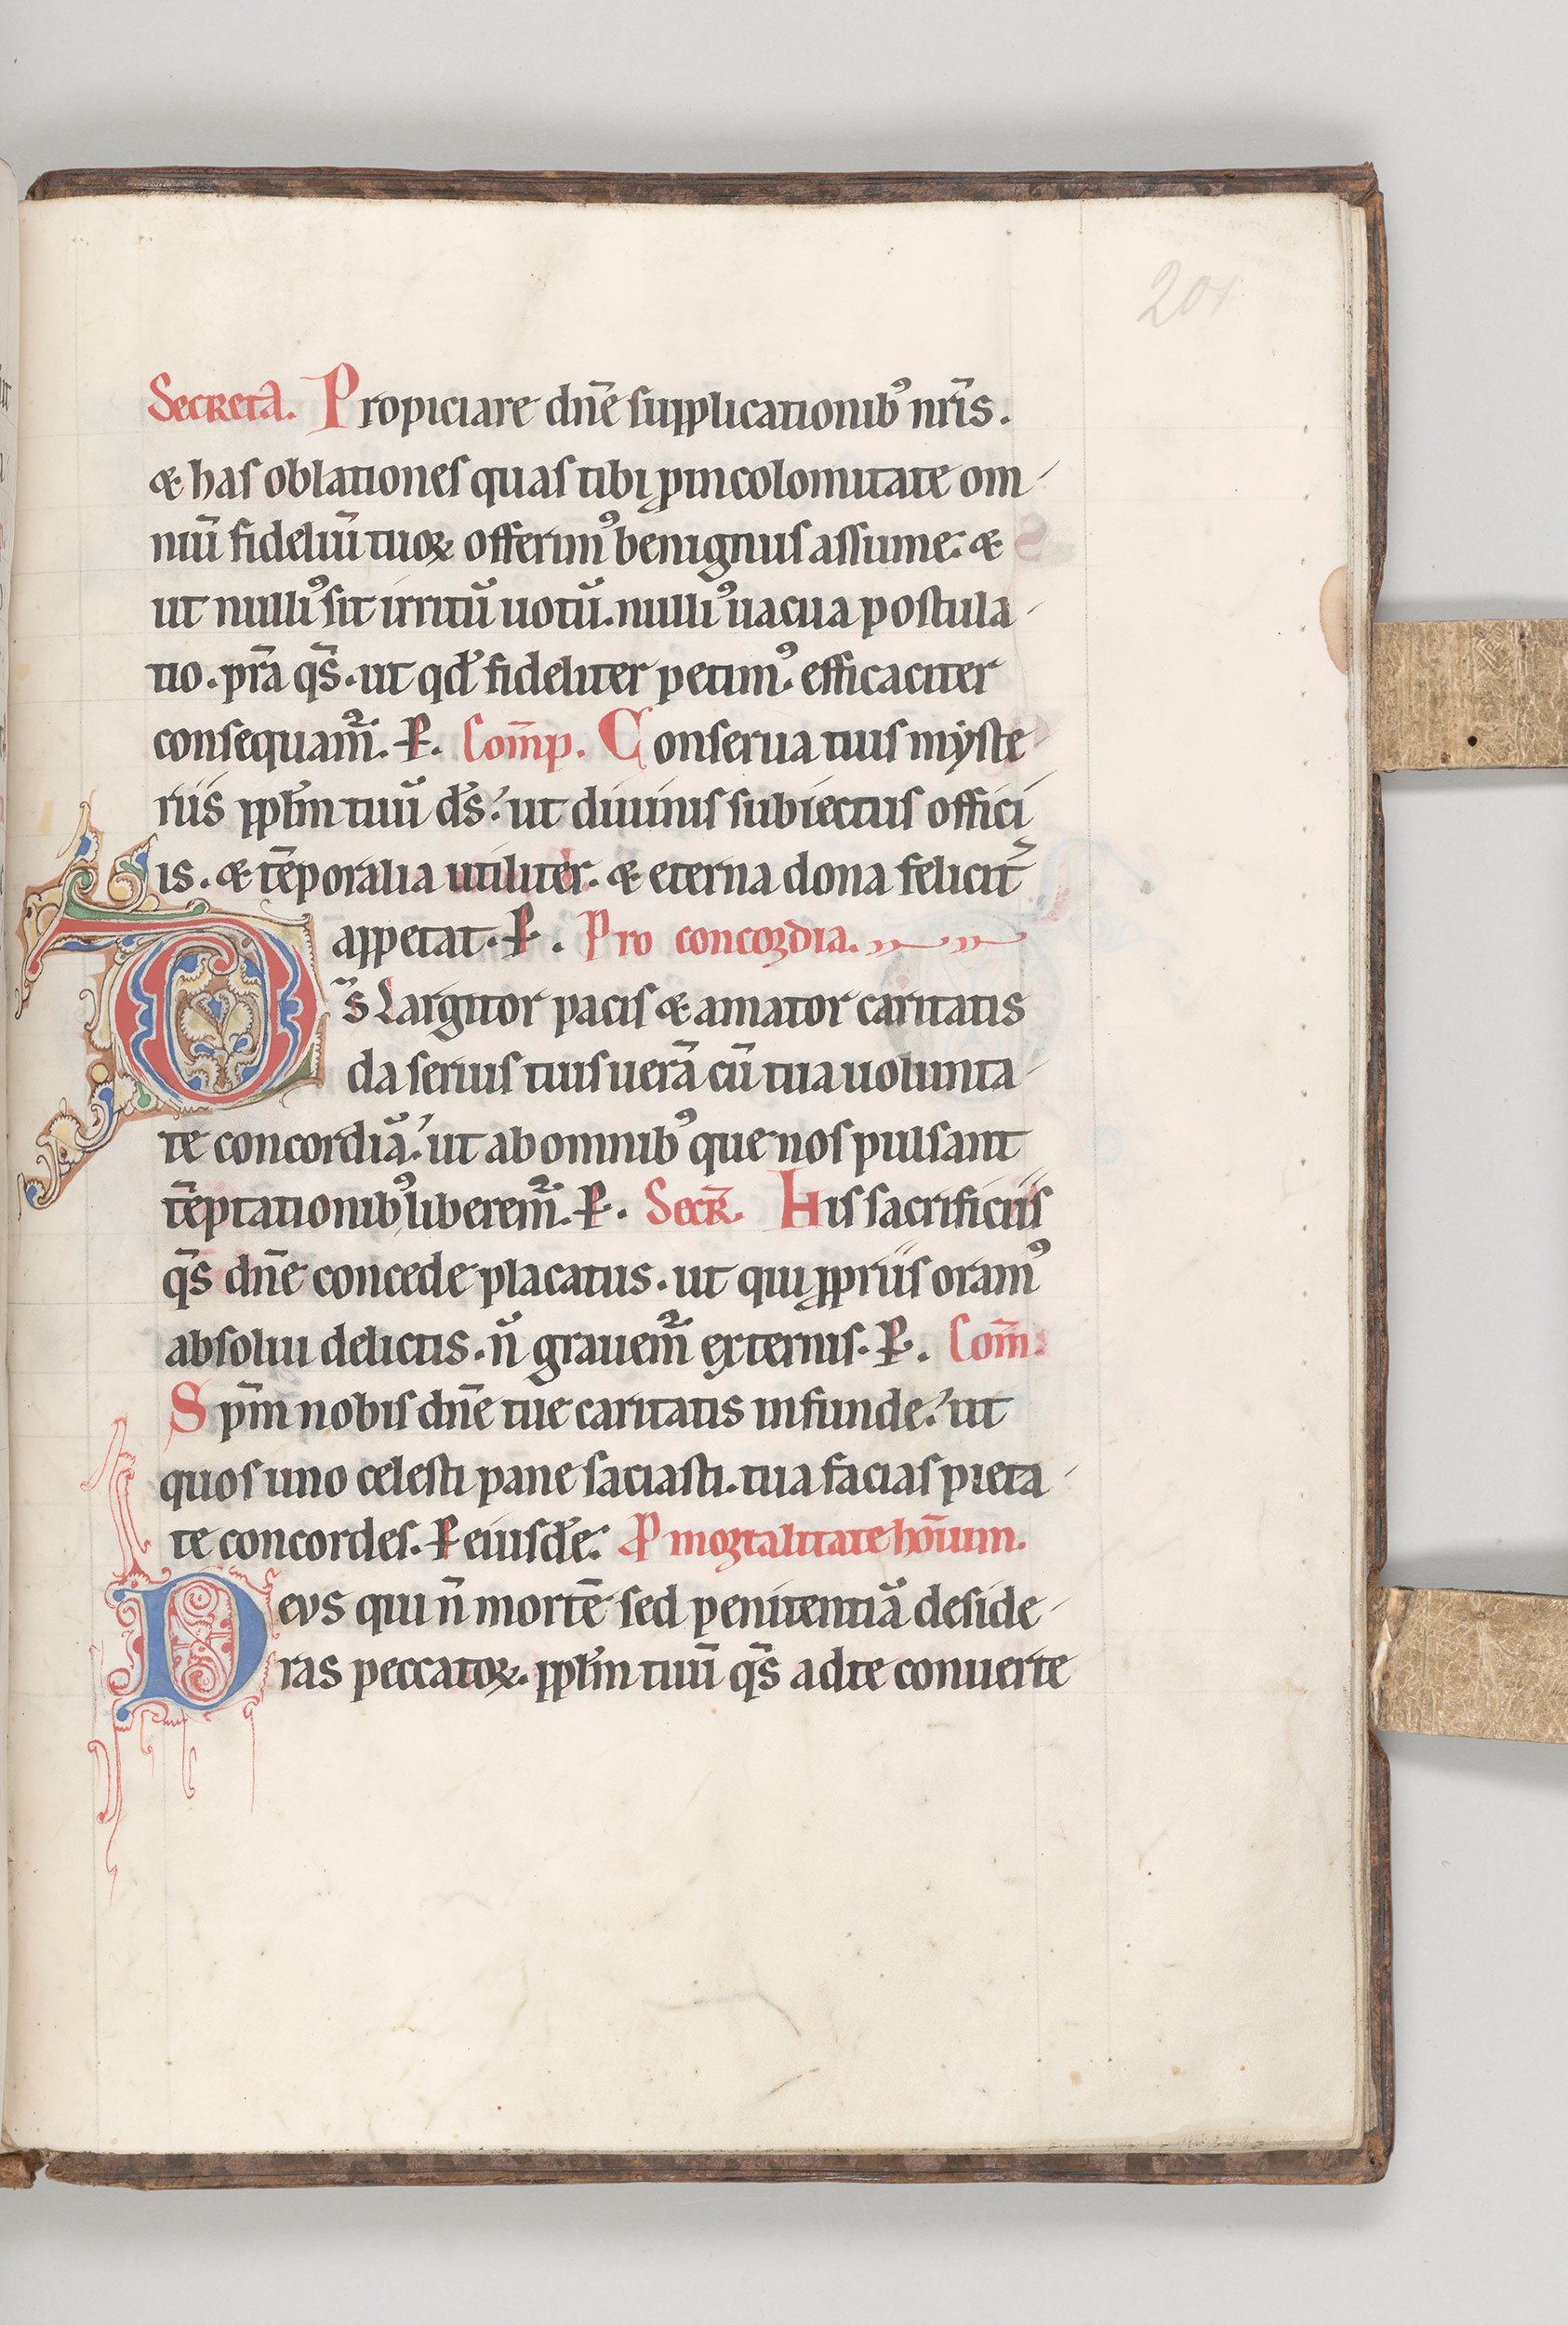 201
Secretã. Propiciare dñe supplicationibꝰ nr̃is.
& has oblationes quas tibi ꝓ incolomitate om-
niũ fideliũ tuoꝝ offerimꝰ benignus assume: &
ut nulliꝰ sit irritũ uotũ. nulliꝰ uacua postula-
tio. pr̃a qs̃. ut qđ fideliter petimꝰ. efficaciter
consequam̃. P. Com̃p. Conserua tuis myste
riis ppłm tuũ ds̃: ut diuinis subiectus offici
is. & tẽporalia utiliter. & eterna dona felicit̃
appetat. P. Pro concordia.
Ds̃ Largitor pacis & amator caritatis
da seruis tuis uerã cũ tua uolunta-
te concordiã: ut ab omnibꝰ que nos pulsant
tẽptationibꝰ liberem̃. P. Secr̃. His sacrificiis
qs̃ dñe concede placatus. ut qui ꝓpriis oramꝰ
absolui delictis. ñ grauem̃ externis. P. Com̃.
Spm̃ nobis dñe tue caritatis infunde: ut
quos uno celesti pane saciasti. tua facias pieta-
te concordes. P eiusdẽ: P mortalitate hõium.
Deus qui ñ mortẽ sed penitentiã deside-
ras peccatoꝝ. ppłm tuũ qs̃ ad te conuerte